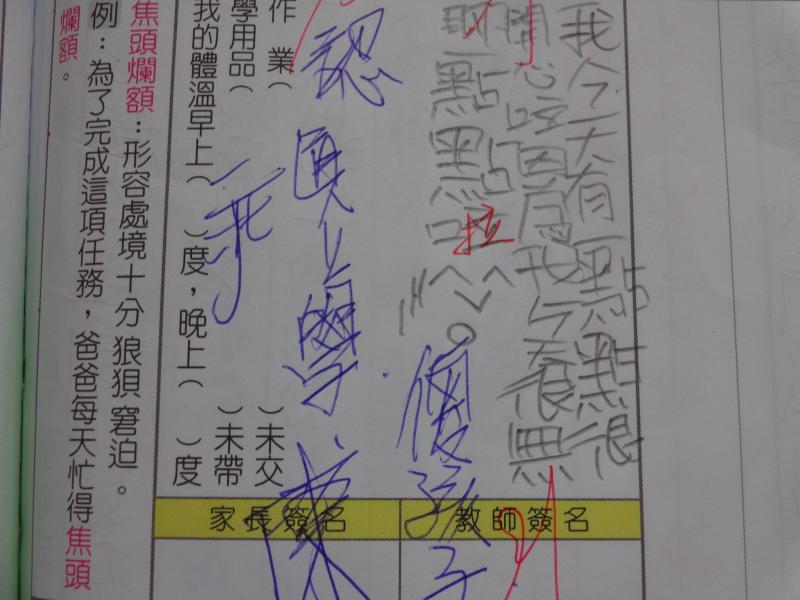 我今天有一點點很
開心因為我今天很無
聊一點點
拉
傻孩子
認真上學
乖
作業（　）未交
學用品（　）未帶
我的體溫早上（　）度，晚上（　）度
教師簽名
家長簽名
焦頭爛額：形容處境十分狼狽窘迫。
例：為了完成這項任務，爸爸每天忙得焦頭
爛額。